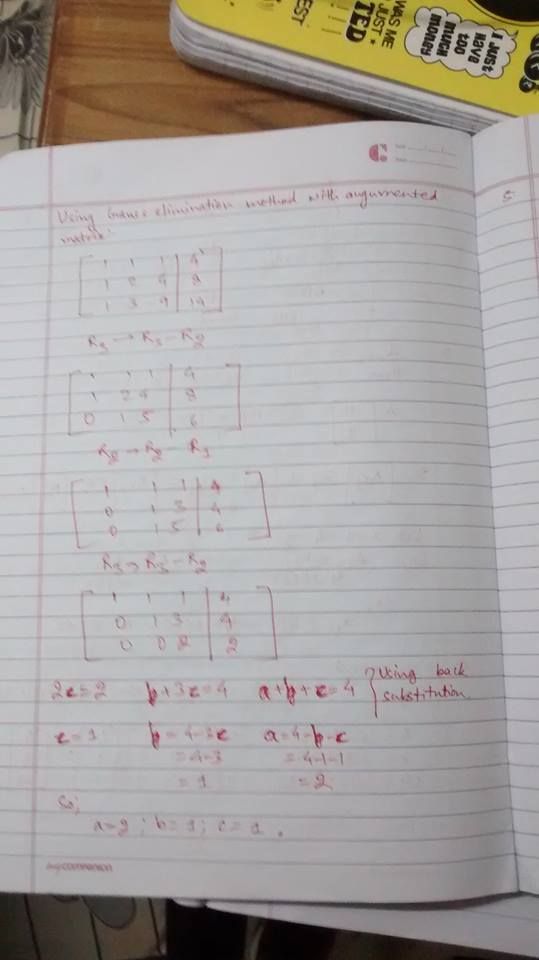 WAS ME
JUST *
TED
EST
I Just
have
too
much
money
C
5
Using Gauss elimination method with augumented
matrix:
1 1 1 | 4
1 2 4 | 8
1 3 9 | 14
R3 → R3 - R2
1 1 1 | 4
1 2 4 | 8
0 1 5 | 6
R2 → R2 - R1
1 1 1 | 4
0 1 3 | 4
0 1 5 | 6
R3 → R3 - R2
1 1 1 | 4
0 1 3 | 4
0 0 2 | 2
2c=2 b+3c=4 a+b+c=4 } Using back
substitution
c=1 b=4-3c a=4-b-c
=4-3 =4-1-1
=1 =2
So;
a=2; b=1; c=1.